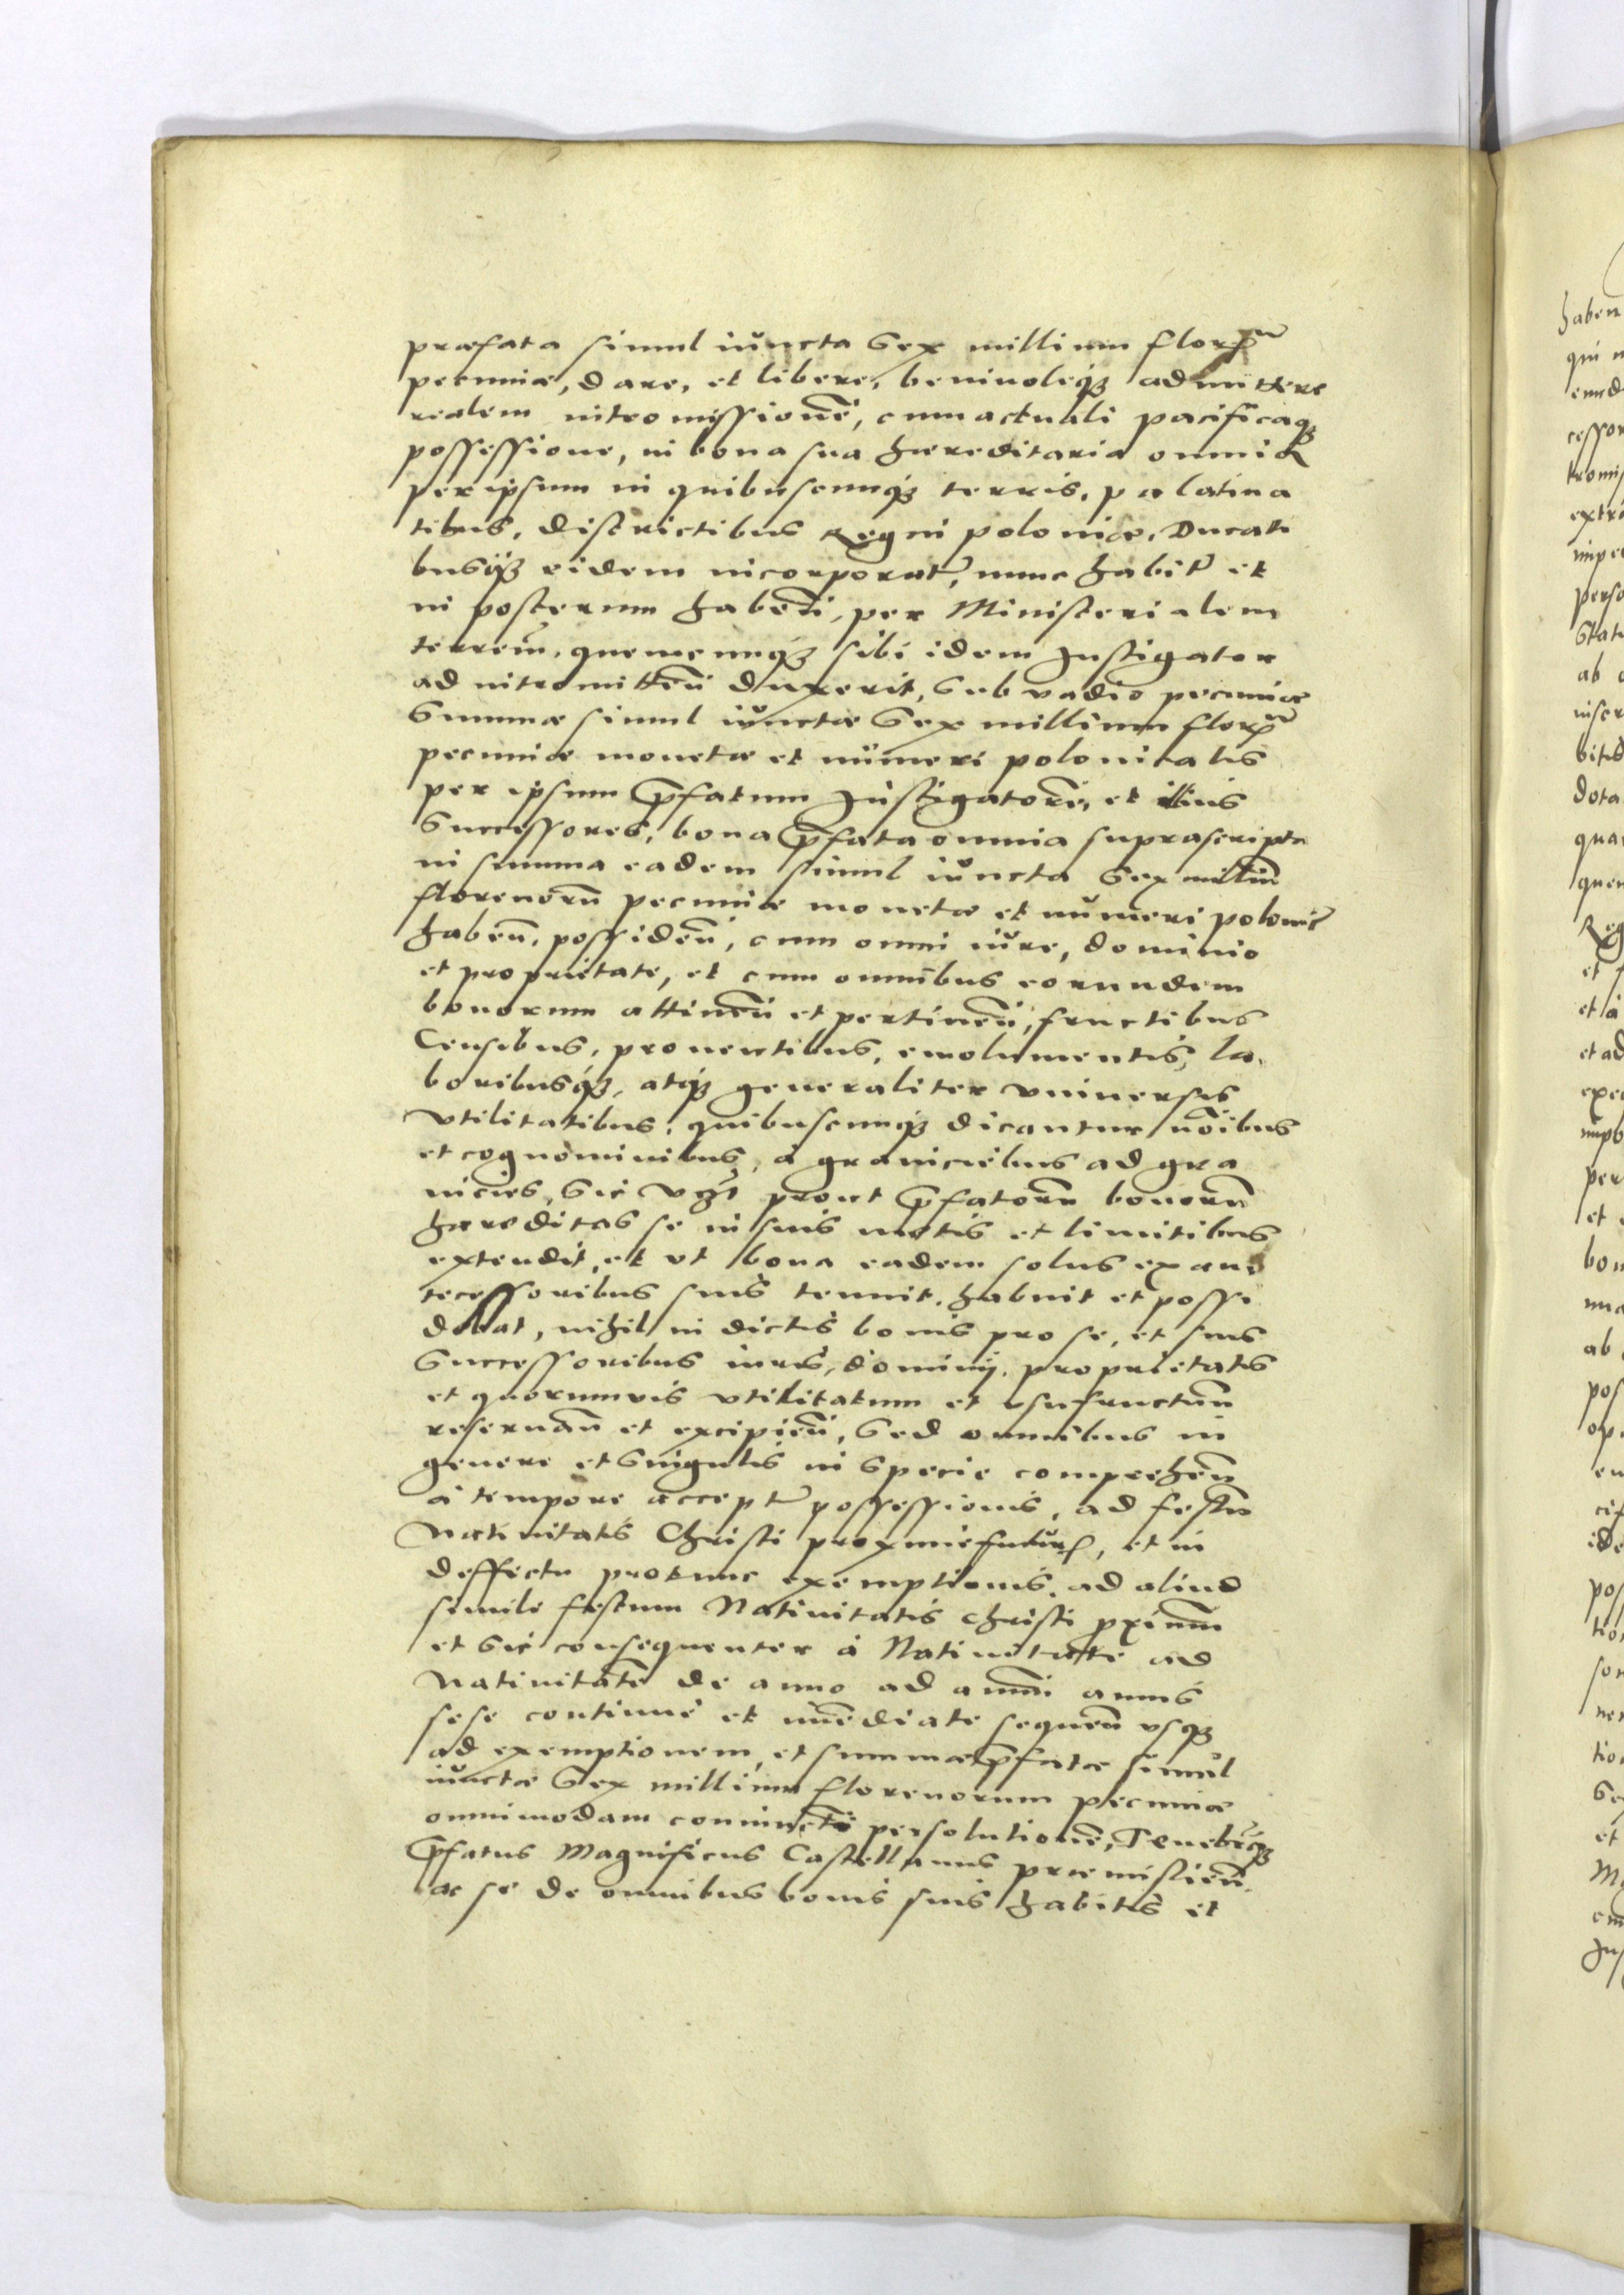 præfata simul iuncta Sex millium florẽ
pecuniæ, dare, et libere, beniuoleq3 admittere
realem intromissionẽ, cum actuali pacificaq3
possessione, in bona sua hæreditaria omnia
per ipsum in quibuscunq3 terris, palatina
tibus, districtibus Regni poloniæ, Ducati
busq3 eidem incorporat, nunc habit et
in posterum habeñ, per Ministerialem
terreñ, quemcunq3 sibi idem Instigator
ad intromitteñ duxerit, Sub vadio pecuniæ
Summæ simul iunctæ Sex millium florẽ
pecuniæ monetæ et numeri polonicalis
per ipsum p̃fatum Instigatorẽ, et illius
Successores, bona p̃fata omnia suprascripta
in summa eadem simul iuncta Sex milliũ
florenorũ pecuniæ monetæ et numeri polonic
habeñ, possideñ, cum omni iure, dominio
et proprietate, et cum omnibus eorundem
bonorum attineñ et pertineñ, fructibus
Censibus, prouentibus, emolumentis, la
boribusq3, atq3 generaliter vniuersis
vtilitatibus, quibuscunq3 dicantur nõibus
et cognominibus, à graniciebus ad gra
nicies, Sic prout p̃fatorũ bonorũ
hæreditas se in suis metis et limitibus
extendit, et vt bona eadem solus ex ante
tecessoribus suis tenuit, habuit et possi
debat, nihil in dictis bonis pro se, et suis
Successoribus iuris, dominij, proprietatis
et quorumuis vtilitatum et vsufructuũ
reseruañ et excipieñ, Sed omnibus in
genere et Singulis in Specie compreheñ
à tempore accept possessionis, ad festũ
Natiuitatis Christi proxime futur, et in
deffectu protunc exemptionis, ad aliud
simile festum Natiuitatis Christi p̃ximũ
et Sic consequenter à Natiuitate ad
Natiuitatẽ de anno ad annũ annis
sese continue et imẽdiate sequeñ vsq3
ad exemptionem, et summæ p̃fatæ simul
iunctæ Sex millium florenorum pecuniæ
omnimodam persolutionẽ, Tenebiťq3
p̃fatus Magnificus Castellanus
ac se de omnibus bonis suis habitis et
haben
qui
eund
cessor
tromis
extra
impe
perso
Stat
ab
inscr
bitis
dota
qua
quem
Reg
et
et à
et ad
exe
per
et
bon
ab
pos
op
tio
son
ner
tio
Se
et